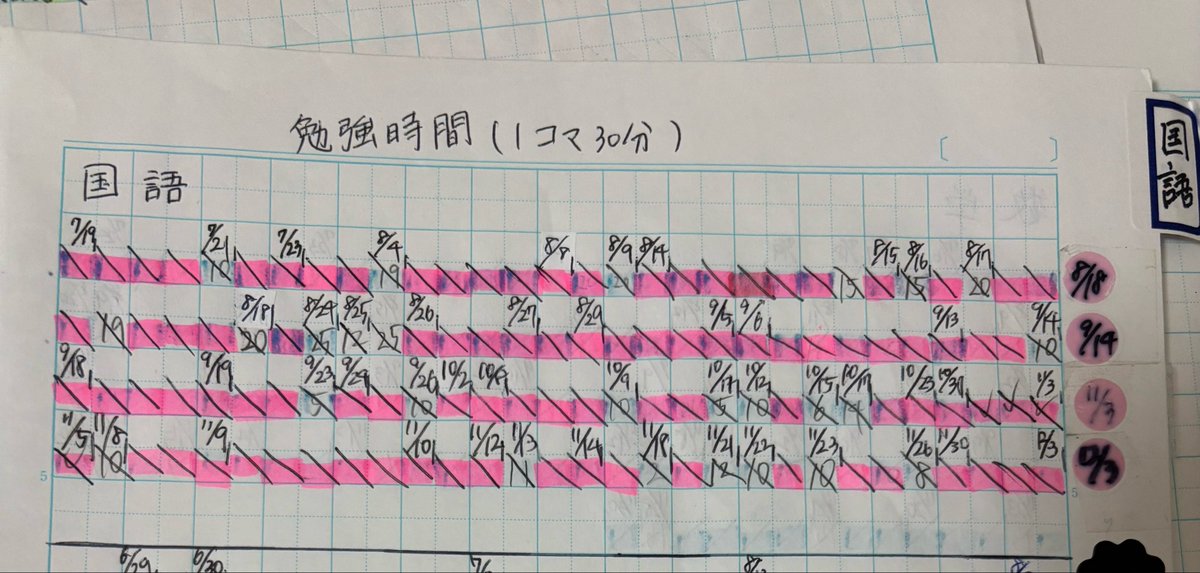 勉強時間(1コマ30分)
国語
国語
7/19 7/21 7/23 8/4 8/8 8/9 8/14 8/15 8/16 8/17
10 19 15 15 20
8/18
8/18 8/24 8/25 8/26 8/27 8/29 9/5 9/6 9/13 9/14
19 20 25 12 25 10
9/14
9/18 9/19 9/23 9/24 9/26 10/2 10/9 10/12 10/15 10/17 10/23 11/3
5 10 10 5 10 6
11/3
11/5 11/8 11/9 11/10 11/12 11/13 11/14 11/18 11/21 11/22 11/23 11/26 11/30 12/3
10 12 10 10 8
12/3
5 5
6/29 6/30